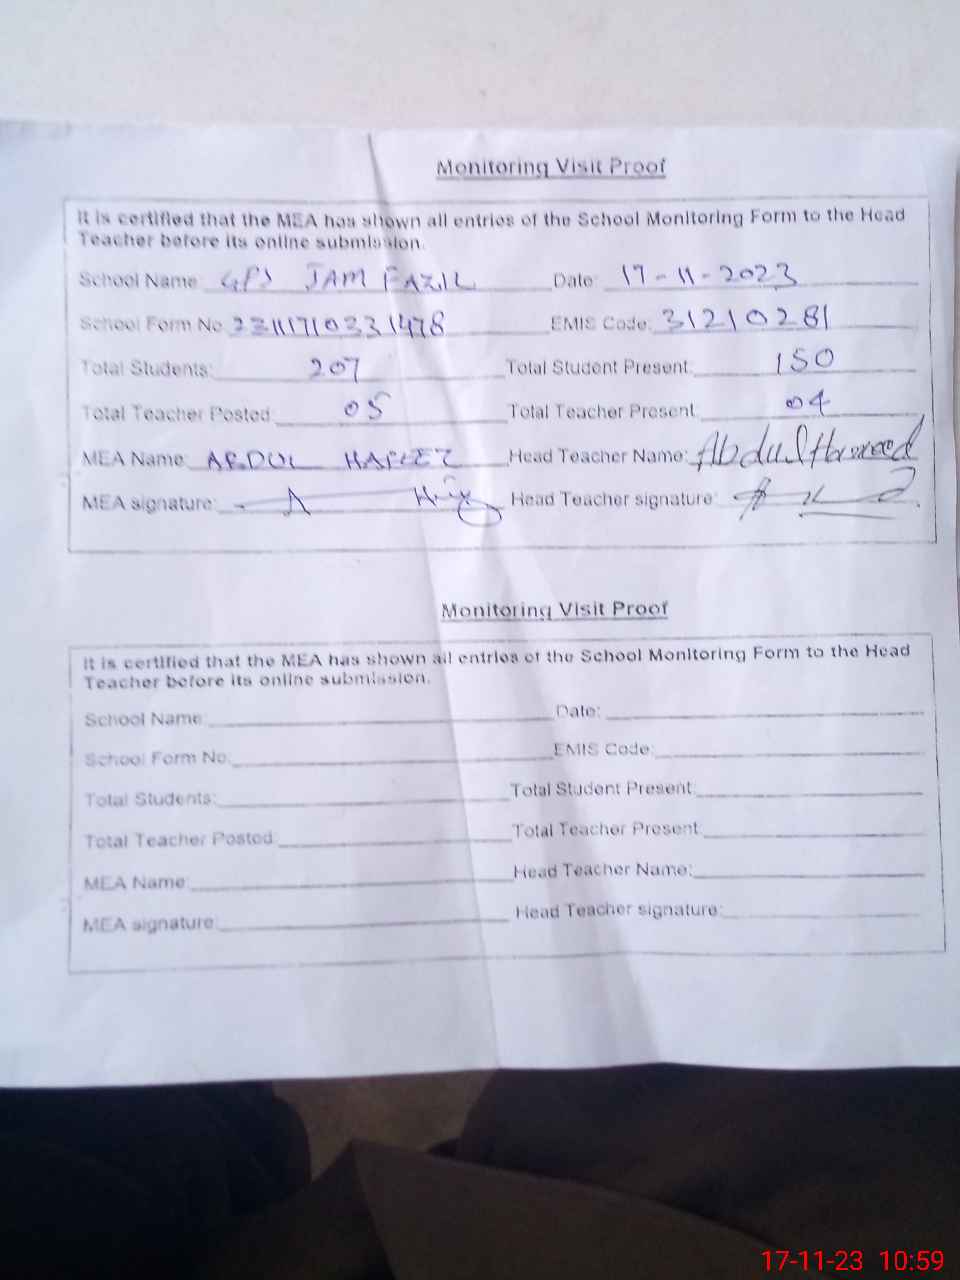 Monitoring Visit Proof
It is certified that the MEA has shown all entries of the School Monitoring Form to the Head
Teacher before its online submission.
School Name: GPS JAM FAZIL Date: 17-11-2023
School Form No. 2311171033 1478 EMIS Code: 31210281
Total Students: 207 Total Student Present: 150
Total Teacher Posted: 05 Total Teacher Present: 04
MEA Name: ABDUL HAFEEZ Head Teacher Name: Abdul Hameed
MEA signature: Head Teacher signature:
Monitoring Visit Proof
It is certified that the MEA has shown all entries of the School Monitoring Form to the Head
Teacher before its online submission.
School Name: Date:
School Form No. EMIS Code:
Total Students: Total Student Present:
Total Teacher Posted: Total Teacher Present:
MEA Name: Head Teacher Name:
MEA signature: Head Teacher signature:
17-11-23 10:59